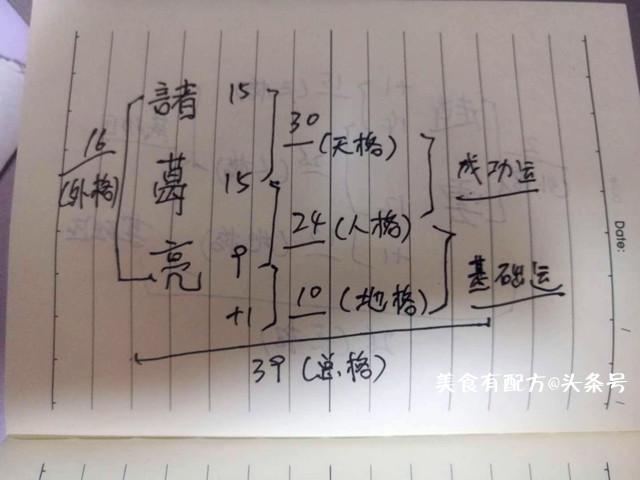 諸 15
30 (天格)
16
(外格)
葛 15
成功运
24 (人格)
亮 9
基础运
+1 10 (地格)
39 (总格)
Date:
美食有配方@头条号